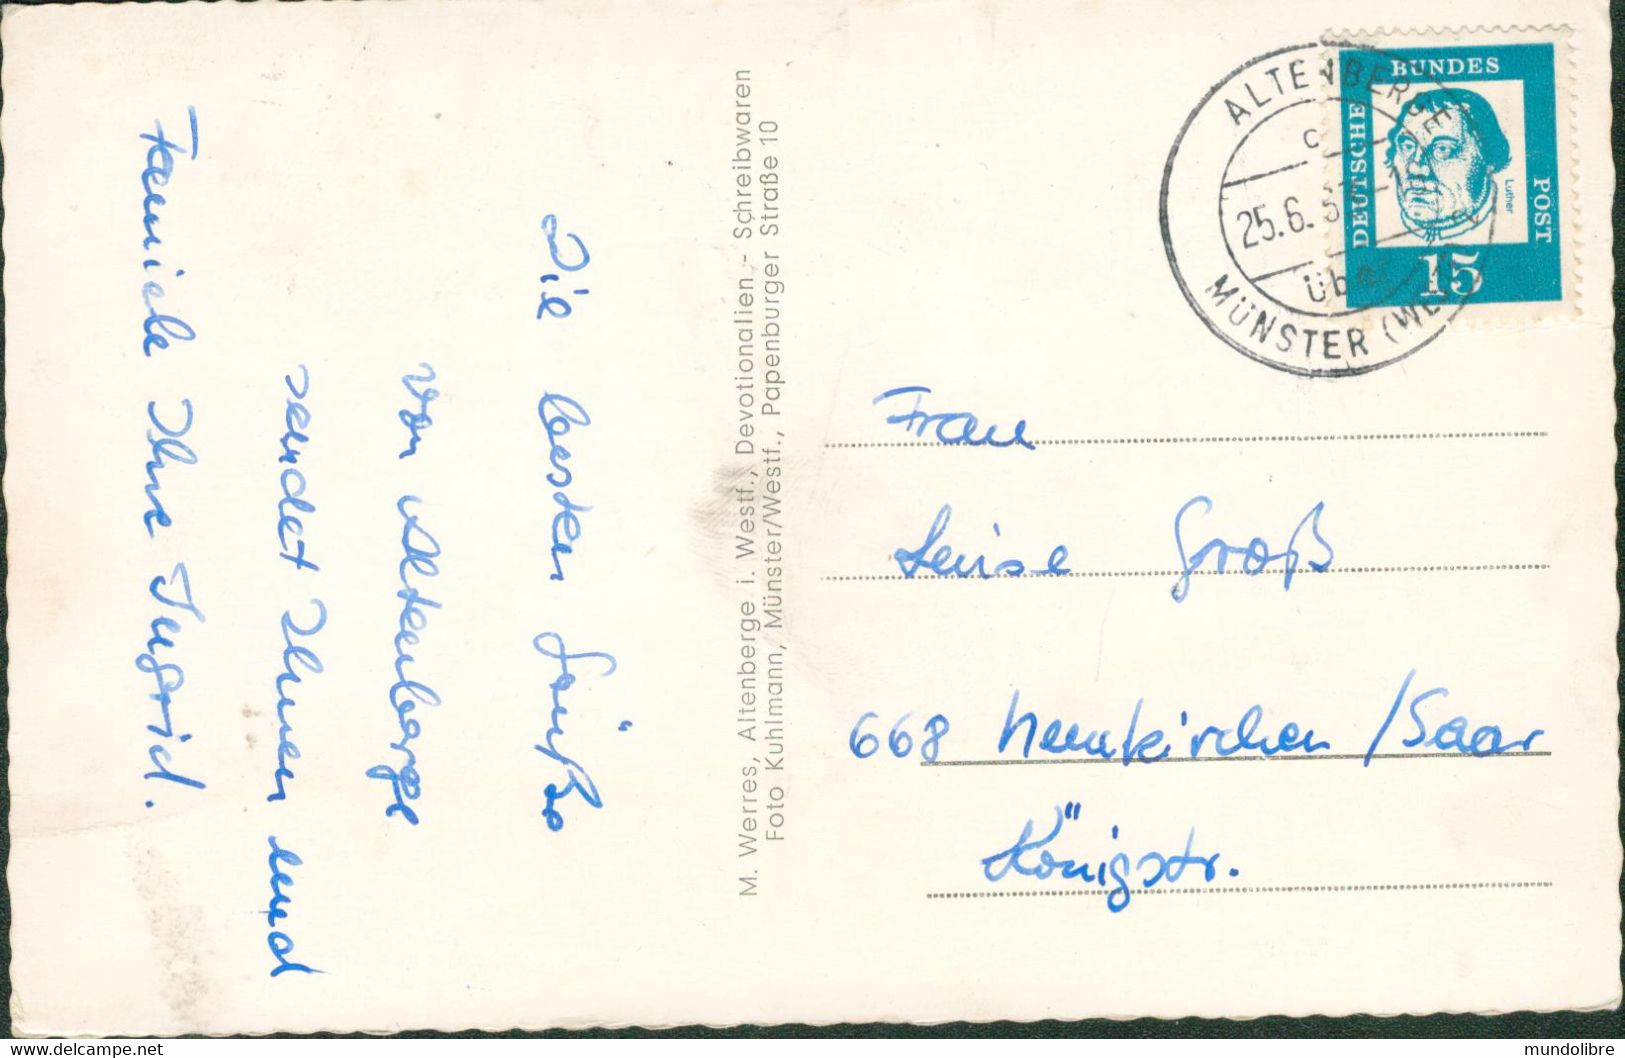 Die besten Grüße
von Altenberge
sendet Ihnen und
Familie Ihre Ingrid.
M. Werres, Altenberge i. Westf., Devotionalien - Schreibwaren
Foto Kuhlmann, Münster/Westf., Papenburger Straße 10
ALTENBERGE
c
25.6.
über
MÜNSTER (WESTF)
DEUTSCHE
BUNDES
POST
Luther
15
Frau
Luise Groß
668 Neunkirchen /Saar
Königstr.
mundolibre